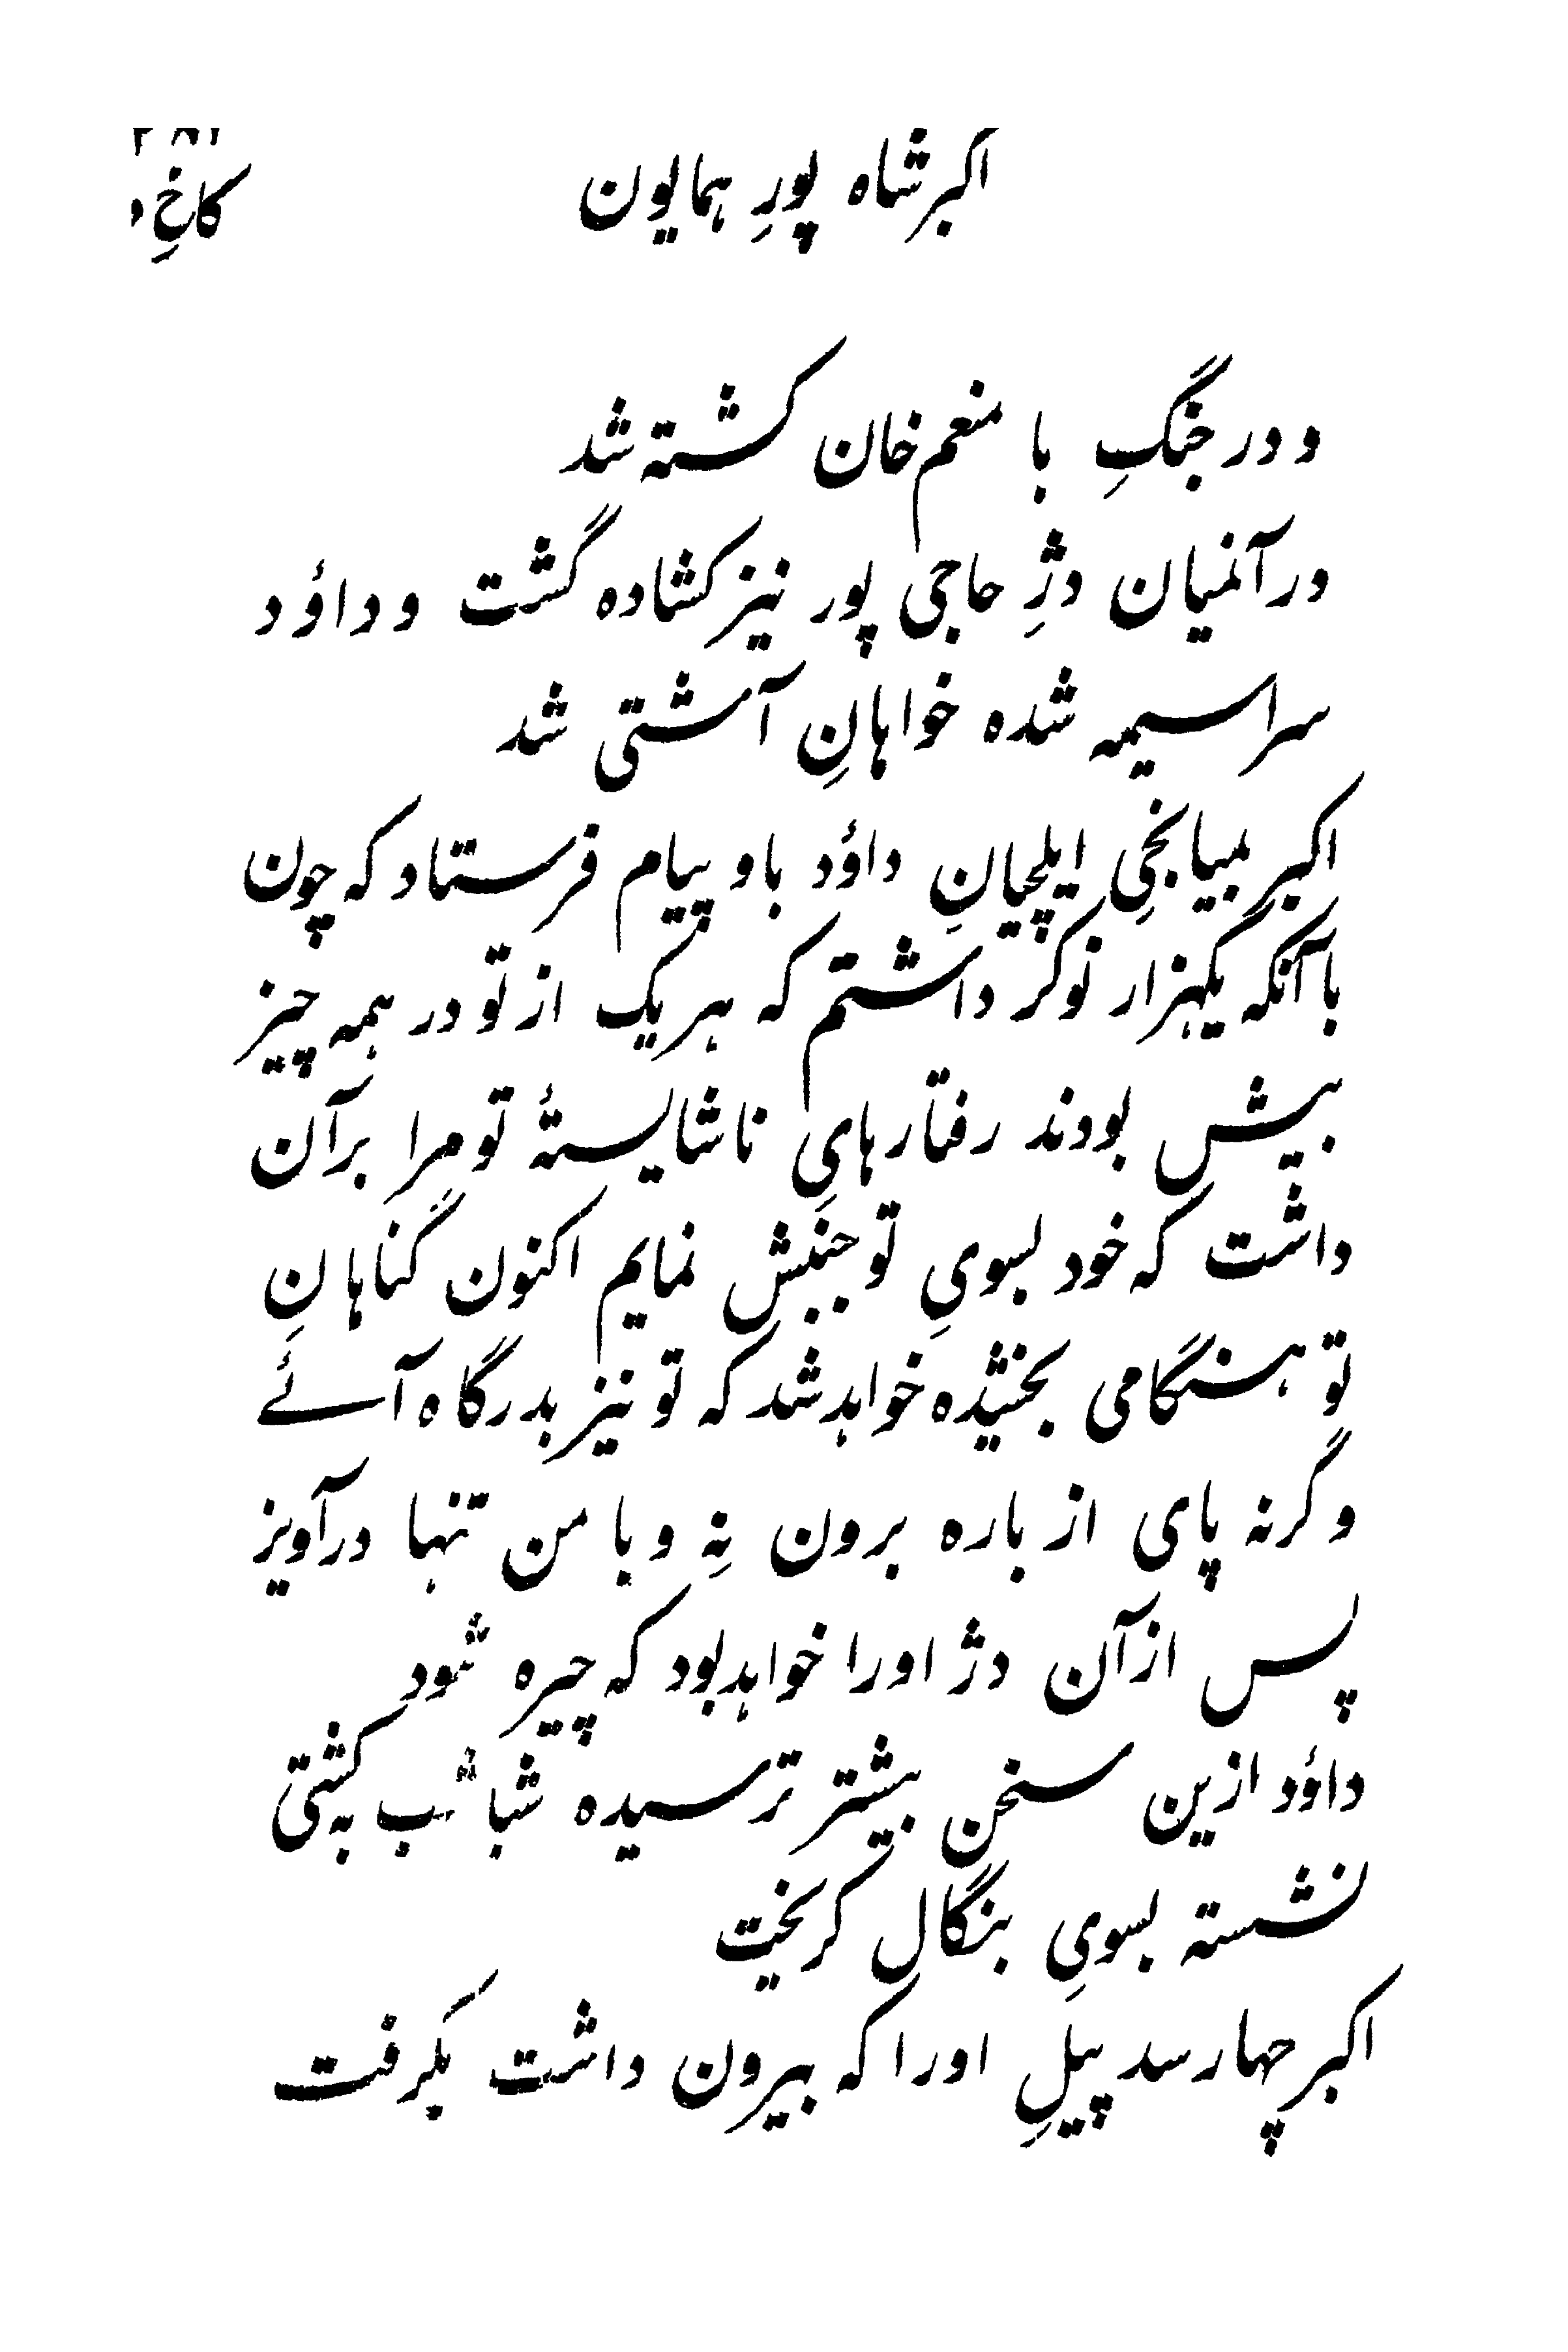 اکبر شاه پورِ همایون
کاخِ
و در جنگِ با منعم خان کشته شد
در آنمیان دژِ حاجی پور نیز کشاده گشت و داؤد
سراسیمه شده خواهانِ آشتی شد
اکبر بمیانجیِ ایلچیانِ داؤد باو پیام فرستاد که چون
با آنکه یکهزار نوکر داشتم که هر یک از تو در همه چیز
بیش بودند رفتارهایِ ناشایستهٔ تو مرا بر آن
داشت که خود بسویِ تو جنبش نمایم اکنون گناهانِ
تو هنگامی بخشیده خواهد شد که تو نیز بدرگاه آئے
وگرنه پای از باره برون نِه و با من تنها در آویز
پس از آن دژ او را خواهد بود که چیره شود
داؤد ازین سخن بیشتر ترسیده شباشب به کشتی
نشسته بسویِ بنگال گریخت
اکبر چهار سد پیلِ او را که بیرون داشت بگرفت